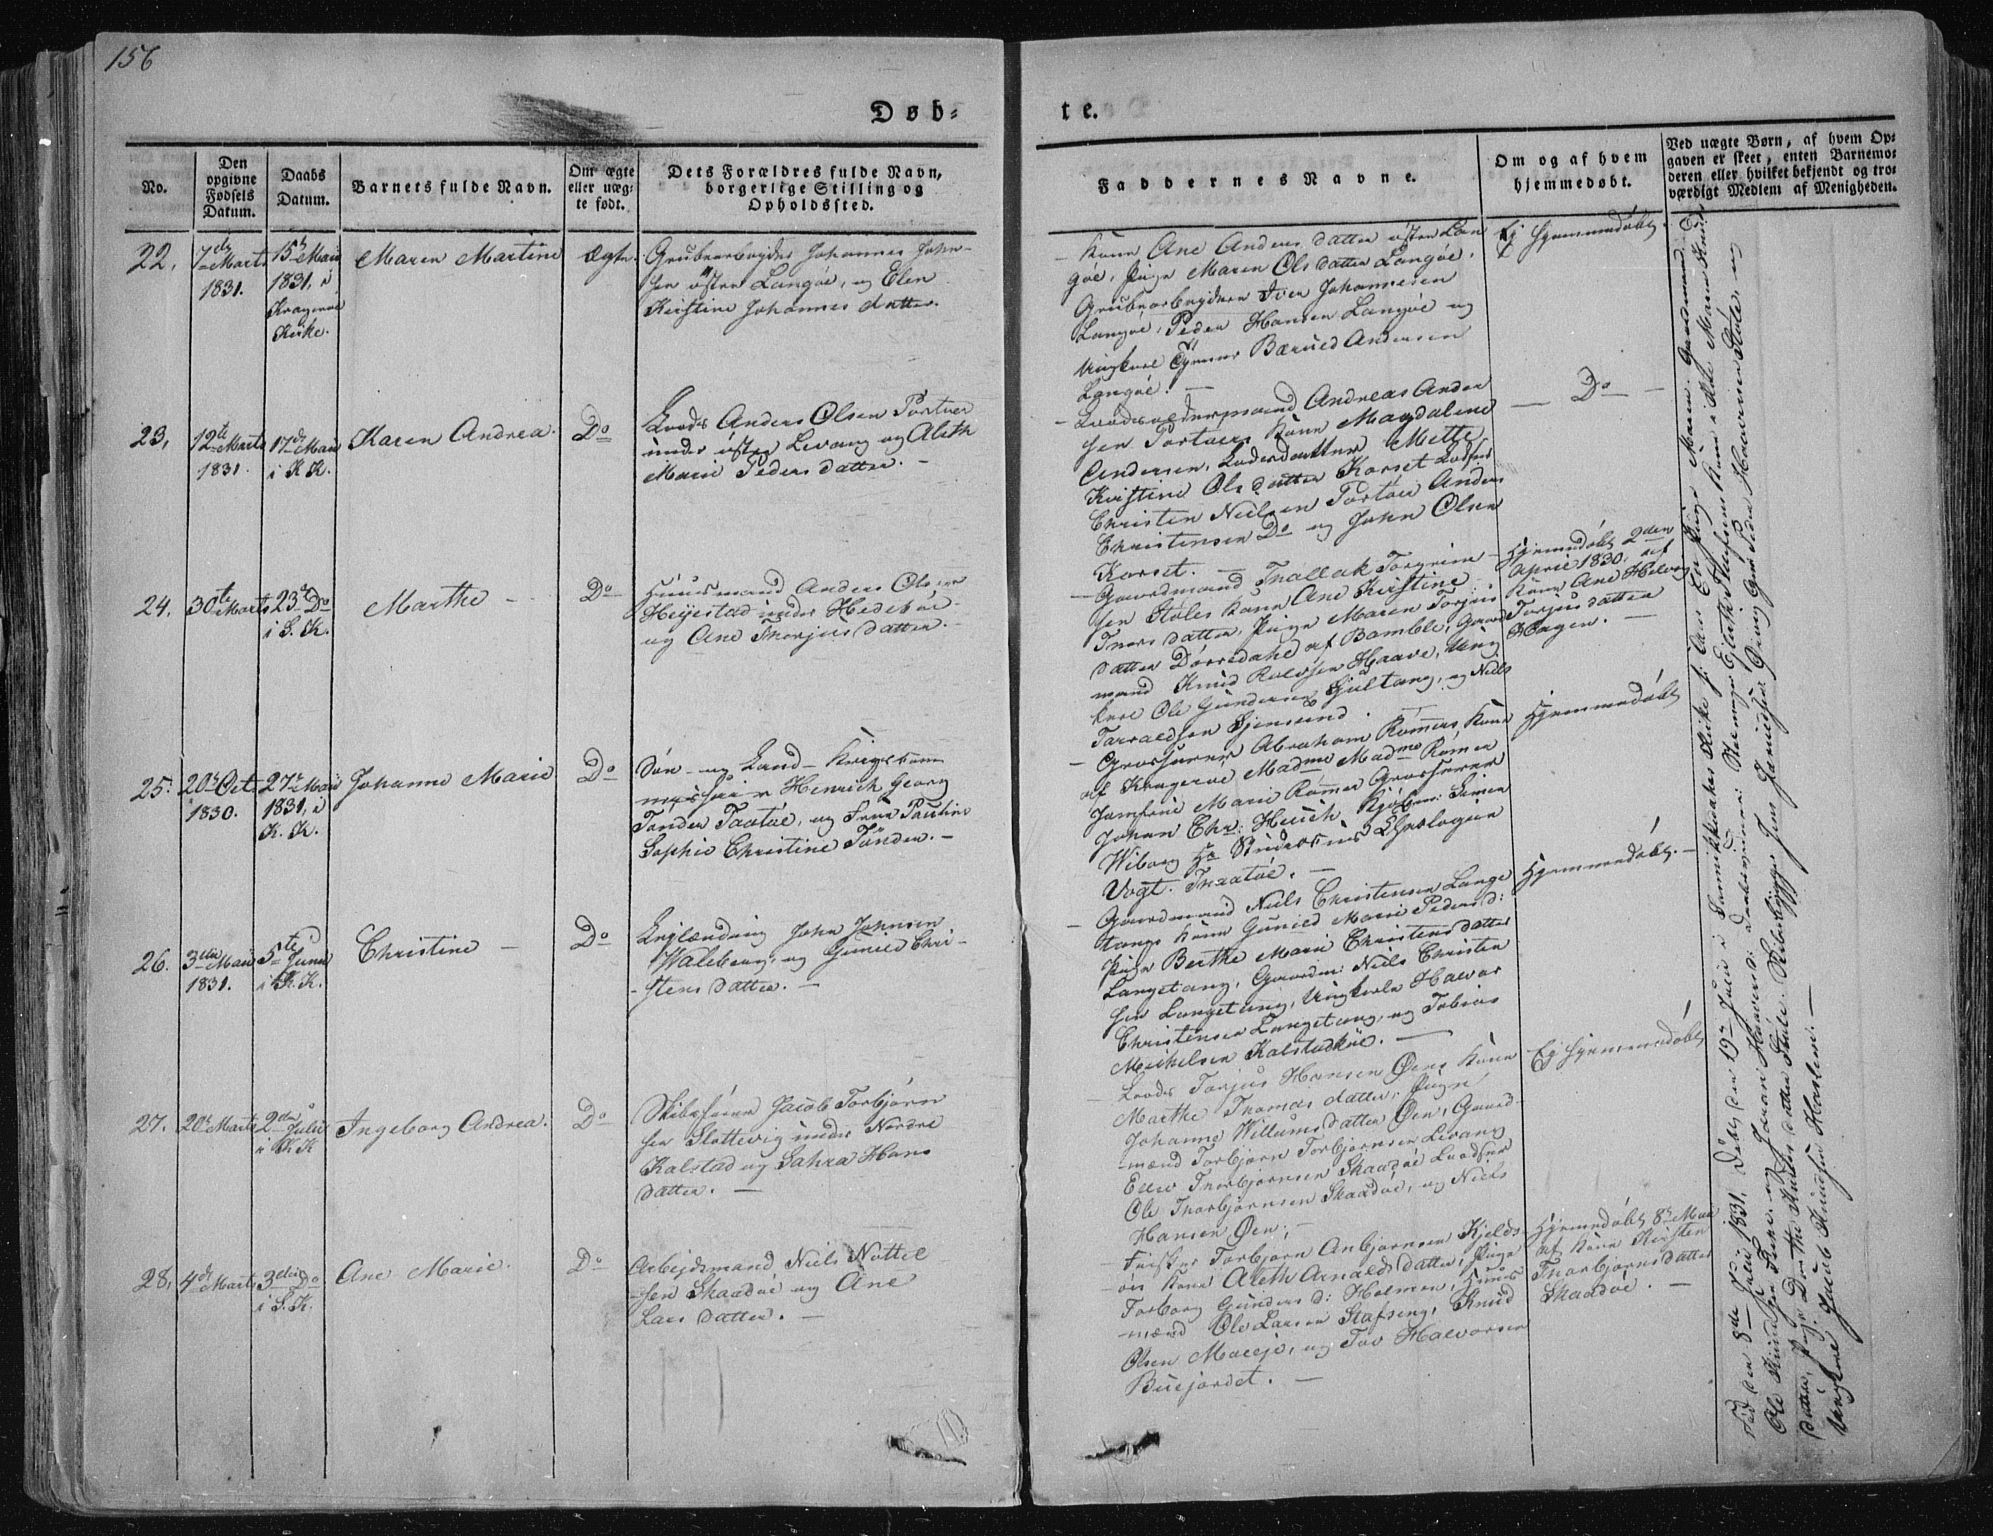 156
Døb-
te.
No.
Den
opgivne
Fødsels
Datum.
Daabs
Datum.
Barnets fulde Navn.
Om ægte
eller uæg-
te født.
Dets Forældres fulde Navn,
borgerlige Stilling og
Opholdssted.
Faddernes Navne.
Om og af hvem
hjemmedøbt.
Ved uægte Børn, af hvem Op-
gaven er skeet, enten Barnemo-
deren eller hvilket bekjendt og tro-
værdigt Medlem af Menigheden.
22.
7de Marts
1831.
15de Mai
1831, i
Kragerøe
Kirke.
Maren Martine
Ægte.
Grubearbeyder Johannes John-
sen østre Langöe, og Elen
Kirstine Johannes datter.
Kone Ane Anders datter østre Lan
göe, Pige Maren Ols datter Langöe,
Grubearbeydere Iver Johannesen
Langöe, Peder Hansen Langöe og
Ungkarl Andersen
Langöe. —
Ej hjemmedöbt.
23.
12te Marts
1831.
17de Mai
i K. K.
Karen Andrea.
Do
Lods Anders Olsen Portöer
under östre Levang og Aleth
Marie Peders datter. —
Lodsoldermand Andreas Ander
sen Portöers Kone Magdalene
Andersen, Lodsdatter Mette
Kirstine Ols datter Korset Lodser
Christen Nielsen Portöer Anders
Christensen Do og John Olsen
Korset. —
— Do —
24.
30te Marts
23de Do
i S. K.
Marthe —
Do
Huusmand Anders Olsen
Heijestad under Hedeböe
og Ane Thorjus datter. —
— Gaardmand Thallak Torgrim
sen Stoles Kone Ane Kirstine
Ivers datter, Pige Maren Torjus
datter Dörredahl af Bamble, Gaard
mand Knud Rolvsen Haave, Ung
karl Ole Gundersen Gjeltang, og Niels
Tarraldsen Gjensund. —
Hjemmedöbt 2den
April 1830, af
Kone Ane Helvig
Torjus datter
Hagen. —
25.
20de Oct
1830.
27de Mai
1831, i
K. K.
Johanne Marie
Do
Söe- og Land- Krigscom
missair Henrich Georg
Tönder Taatöe, og Frue Pauline
Sophie Christine Tönder. —
— Grosserer Abraham Römers Kone
af Kragerøe Madme Madme Römer
Jomfrue Marie Römer Grosserer
Johan Chr: Heuch, Kjöbm: Simen
Wiborg Hr Studiosus Theologiæ
Vogt. Thaatöe. —
Hjemmedöbt
26.
3die Mai
1831.
5te Junii
i K. K.
Christine —
Do
Englænding John Johnsen
Walberg, og Gunild Chri-
stens datter. —
— Gaardmand Niels Christensen Lange
tangs Kone Gunild Marie Peders d:
Pige Berthe Marie Christens datter
Langetang, Gaardm: Niels Christen
sen Langetang, Ungkarle Halvor
Christensen Langetang, og Tobias
Michelsen Kalstadkiil. —
Hjemmedöbt. —
27.
20de Marts
2den Julii
i K K
Ingeborg Andrea.
Do
Skibsförer Jacob Torbjörn
sen Slottevig under Nordre
Kalstad og Sahra Hans
datter. —
Lods Torjus Hansen Öens Kone
Marthe Thomas datter, Pige
Johanne Willums datter Öen, Gaard-
mænd Torbjörn Torbjörnsen Levang
Ellev Thorbjörnsen Skaadöe Lodser
Ole Thorbjörnsen Skaadöe, og Niels
Hansen Öen. —
Ej hjemmedöbt
28.
4de Marts
3die Do
i S. K.
Ane Marie.
Do
Arbejdsmand Niels Nottel
sen Skaadöe og Ane
Lars datter. —
Fisker Torbjörn Anbjörnsen Kjelds
öes Kone Aleth Arnolds datter, Pige
Torborg Gunders d: Holmen, Huus
mænd Ole Larsen Stafseng, Knud
Olsen og Tov Halvorsen
Buejordet. —
Hjemmedöbt 8de Mai
af Kone Kirsten
Thorbjörnsdatter
Skaadöe. —
Födt den 8de Julii 1831. Döbt den 19de Julii i Sannikedals Kirke
Ole Knudsen og Haavorsd:
datter, Pige Dorthe Anders datter Stole.
Ungkarl Jacob Knudsen Haslem. —